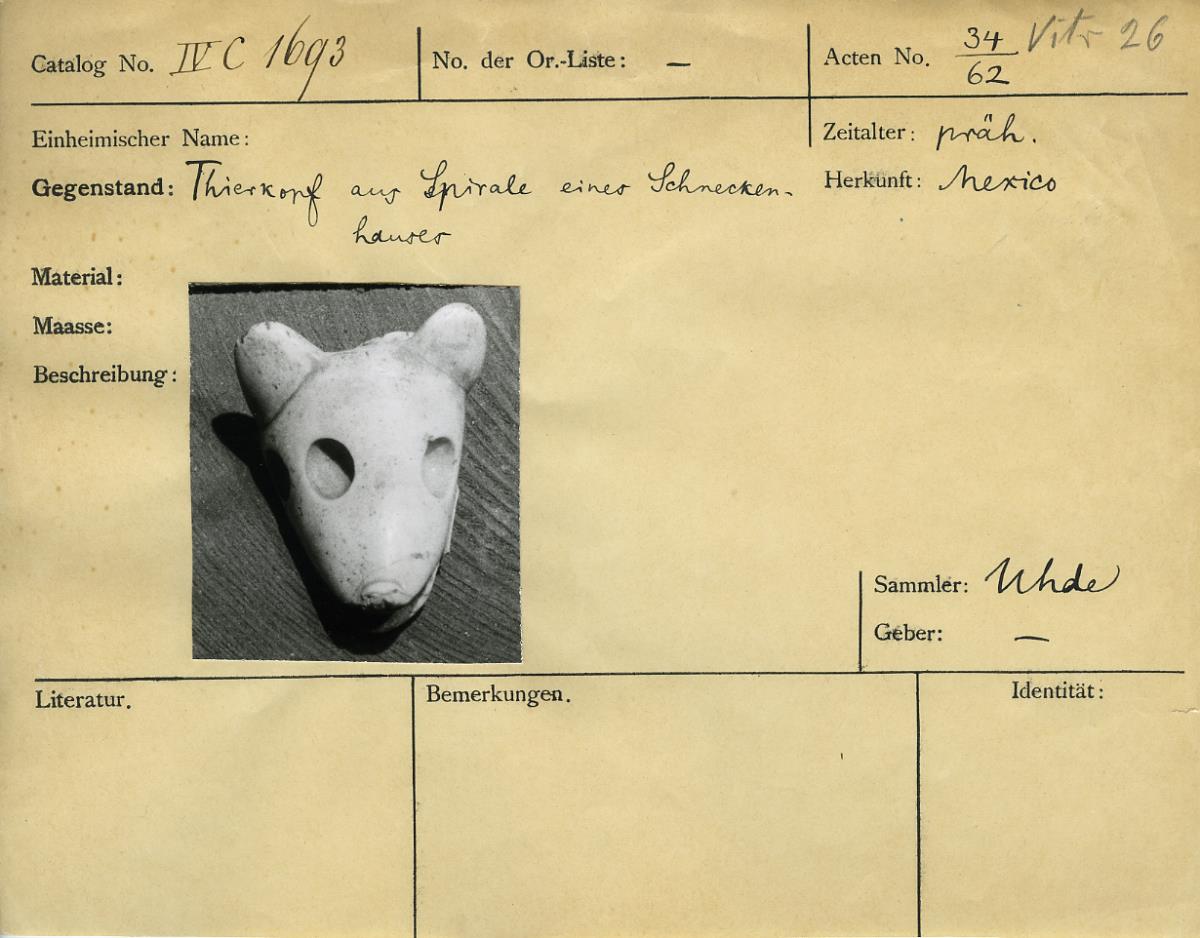 Catalog No. IV C 1693
No. der Or.-Liste: —
Acten No. 34/62 Vitr 26
Einheimischer Name:
Zeitalter: präh.
Gegenstand: Thierkopf aus Spirale eines Schnecken-
hauses
Herkunft: Mexico
Material:
Maasse:
Beschreibung:
Sammler: Uhde
Geber: —
Literatur.
Bemerkungen.
Identität: